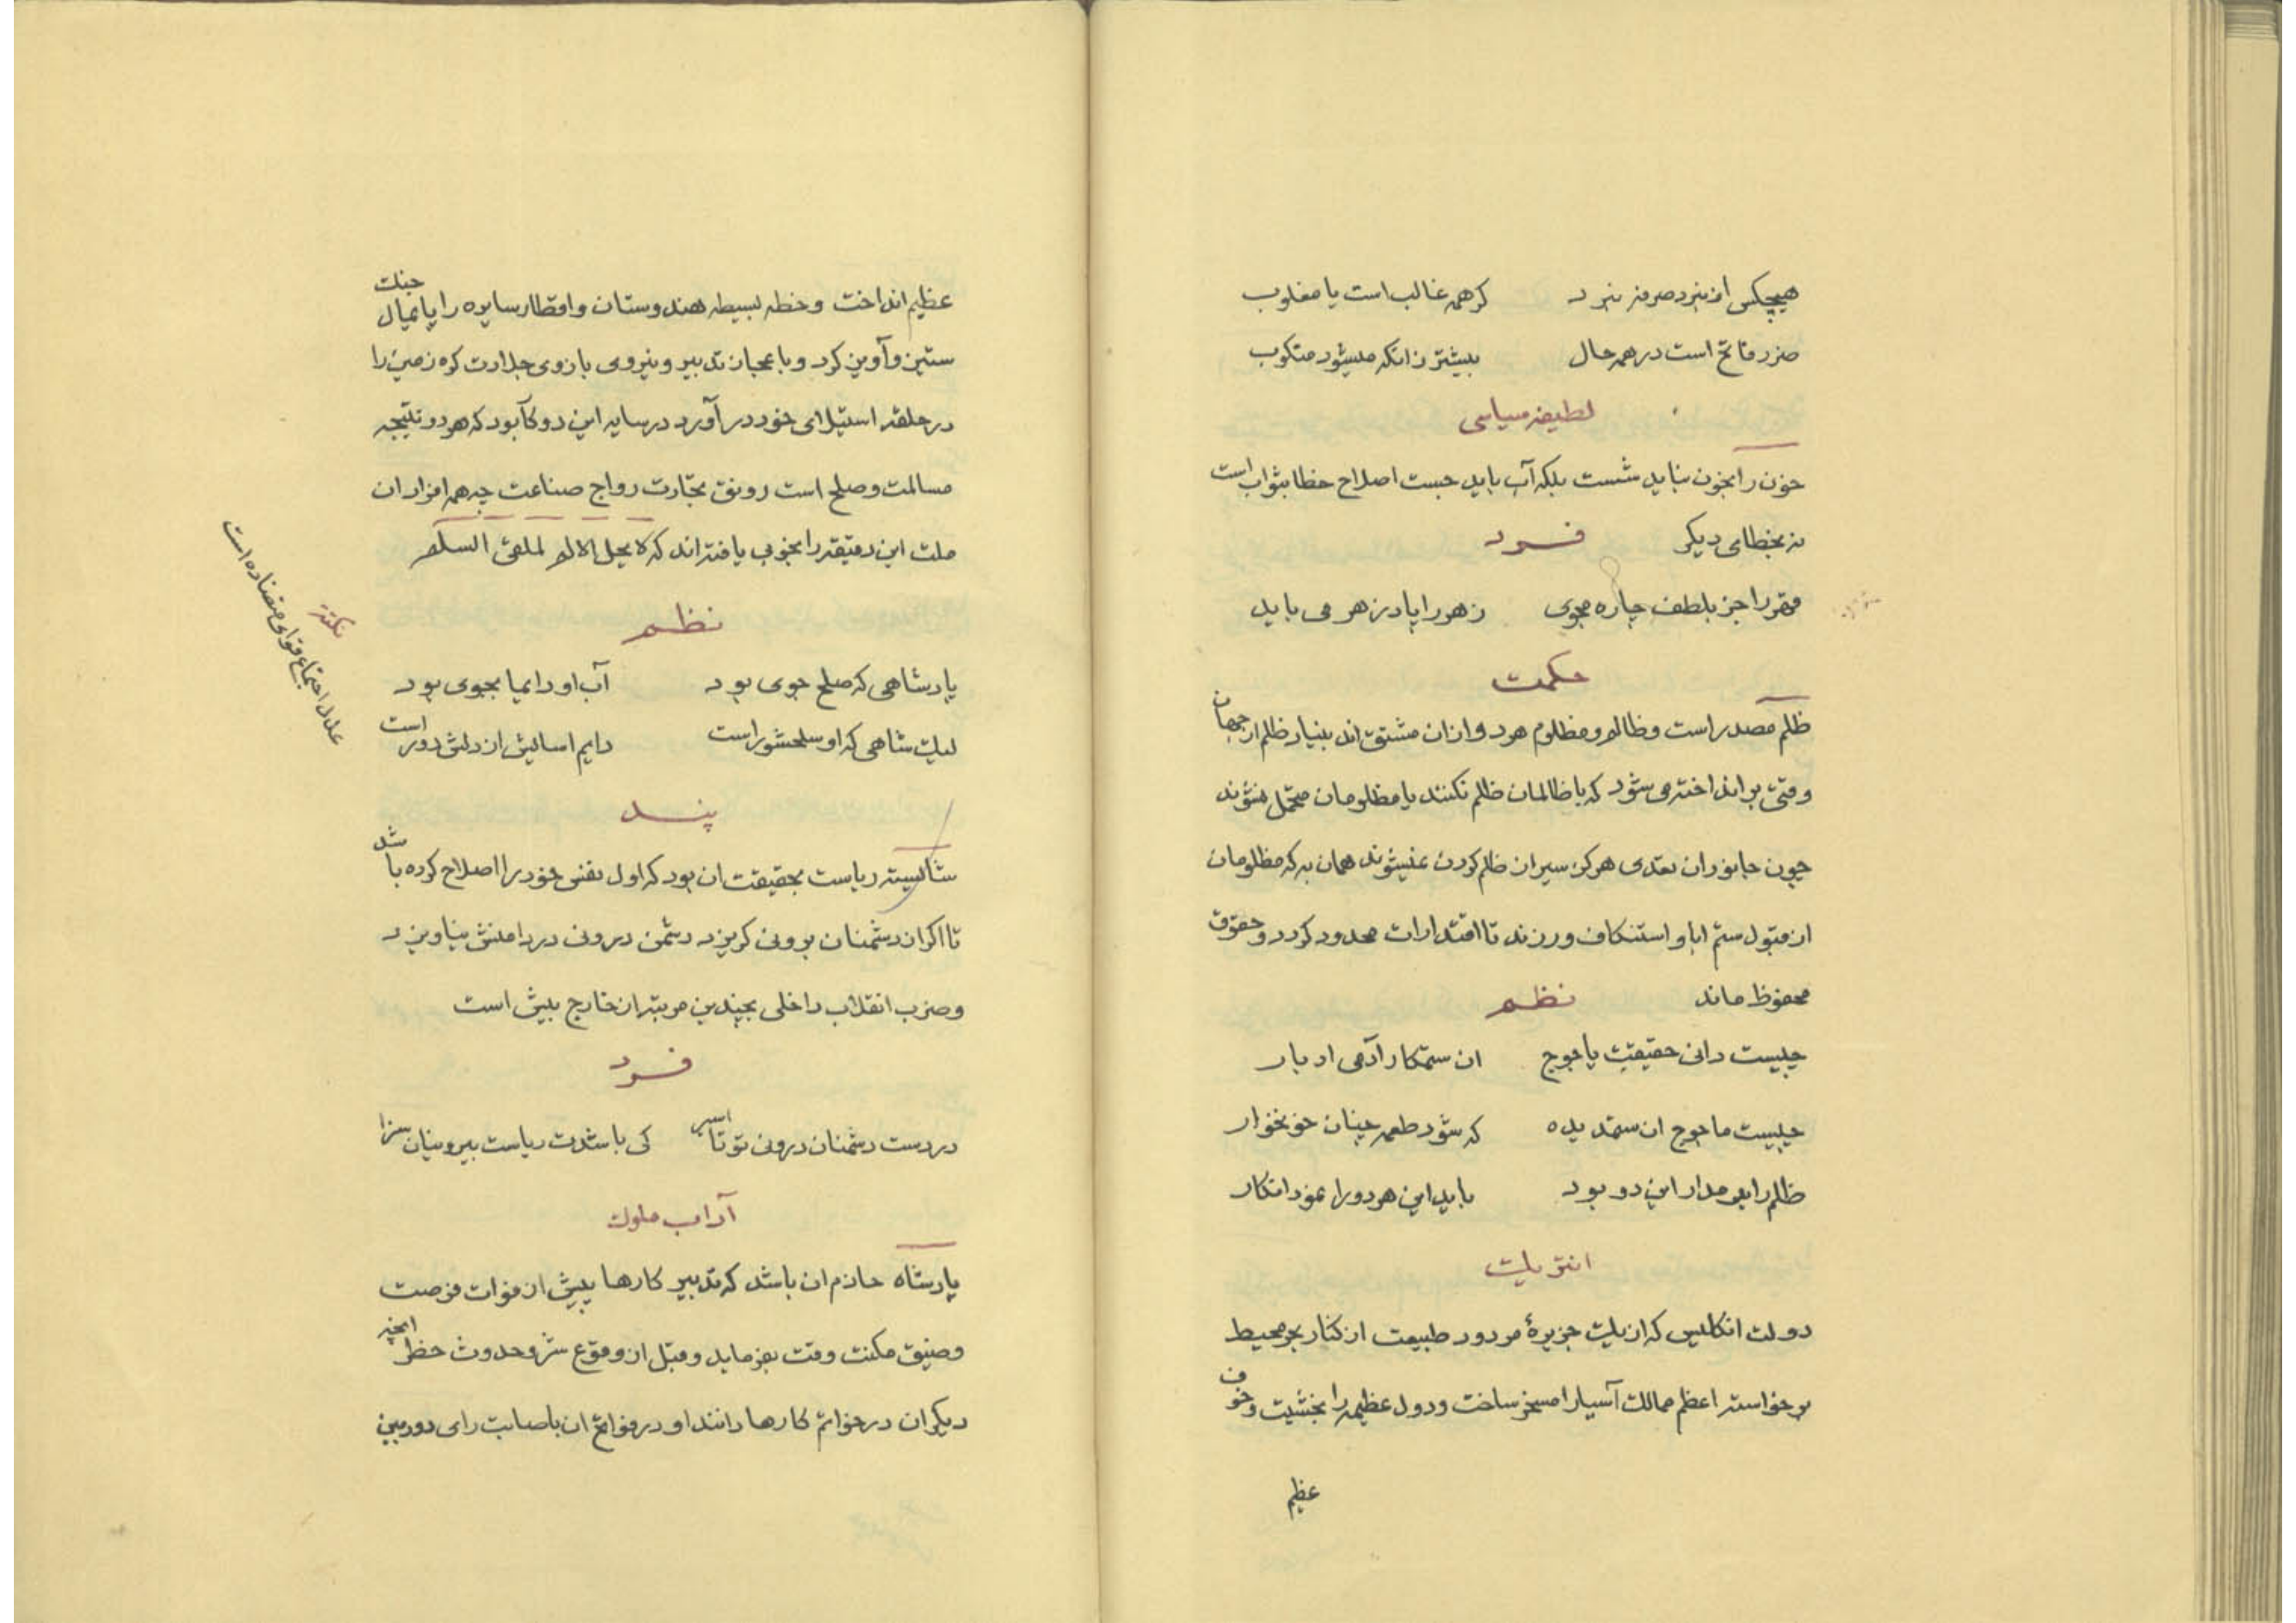 هیچکس از نبرد صرفه نبرد     کرهمه غالب است یا مغلوب
ضرر فاتح است در همه حال     بیشتر زانکه میشود منکوب
لطیفه سیاسی
خون را بخون نباید شست بلکه آب باید جست اصلاح خطا بثواب است
نه بخطای دیگر     فرد
قهر را جز بلطف چاره مجوی     زهر را پادزهر می باید
حکمت
ظلم مصدر است و ظالم و مظلوم هر دو از ان مشتق اند بنیاد ظلم از جهان
وقتی بر انداخته می شود که یا ظالمان ظلم نکنند یا مظلومان متحمل نشوند
چون جانوران تعدی هرکز سیر از ظلم کردن نمیشوند همان به که مظلومان
از قبول ستم ابا و استنکاف ورزند تا اقتدارات محدود کردد و حقوق
محفوظ ماند     نظم
چیست دانی حقیقت یاجوج     ان ستمکار آدمی ادبار
چیست ماجوج ان ستمدیده     که شود طعمه چنان خونخوار
ظلم را چو مدار این دو بود     باید این هر دو را نمود انکار
انتریک
دولت انکلیس که از یک جزیرهٔ مردود طبیعت از کنار بحر محیط
برخواسته اعظم ممالک آسیا را مسخر ساخت و دول عظیمه را بخشیت و خوف
عظیم
عظیم انداخت و خطه بسیطه هندوستان و اقطار سایره را پایمال جنک
ستیز و آویز کرد و باعجاز تدبیر و نیروی بازوی جلادت کره زمین را
در حلقه استیلای خود در آورد در سایه این دو کار بود که هر دو نتیجه
مسالمت و صلح است رونق تجارت رواج صناعت چه همه افراد ان
ملت این دقیقه را بخوبی یافته اند که لا یحل الا لم لملقی السلم
نظم
پادشاهی که صلح جوی بود     آب او دایما بجوی بود
لیک شاهی که او سلحشور است     دایم اسایش از دلش دور است
نکته
علل اجتماع قوای متضاده است
پند
شایسته ریاست بحقیقت ان بود که اول نفس خود را اصلاح کرده باشد
تا اکر از دشمنان برونی کریزد دشمن درونی در دامنش نیاویزد
و ضرب انقلاب داخلی بچندین مرتبه از خارج بیش است
فرد
در دست دشمنان درونی تو تا اسیر     کی باشدت ریاست بیرونیان سزا
آداب ملوک
پادشاه حازم ان باشد که تدبیر کارها پیش از فوات فرصت
و ضیق مکنت وقت بفرماید و قبل از وقوع شر و حدوث خطر انچه
دیکران در خواتم کارها دانند او در فواتح ان باصابت رای دوربین